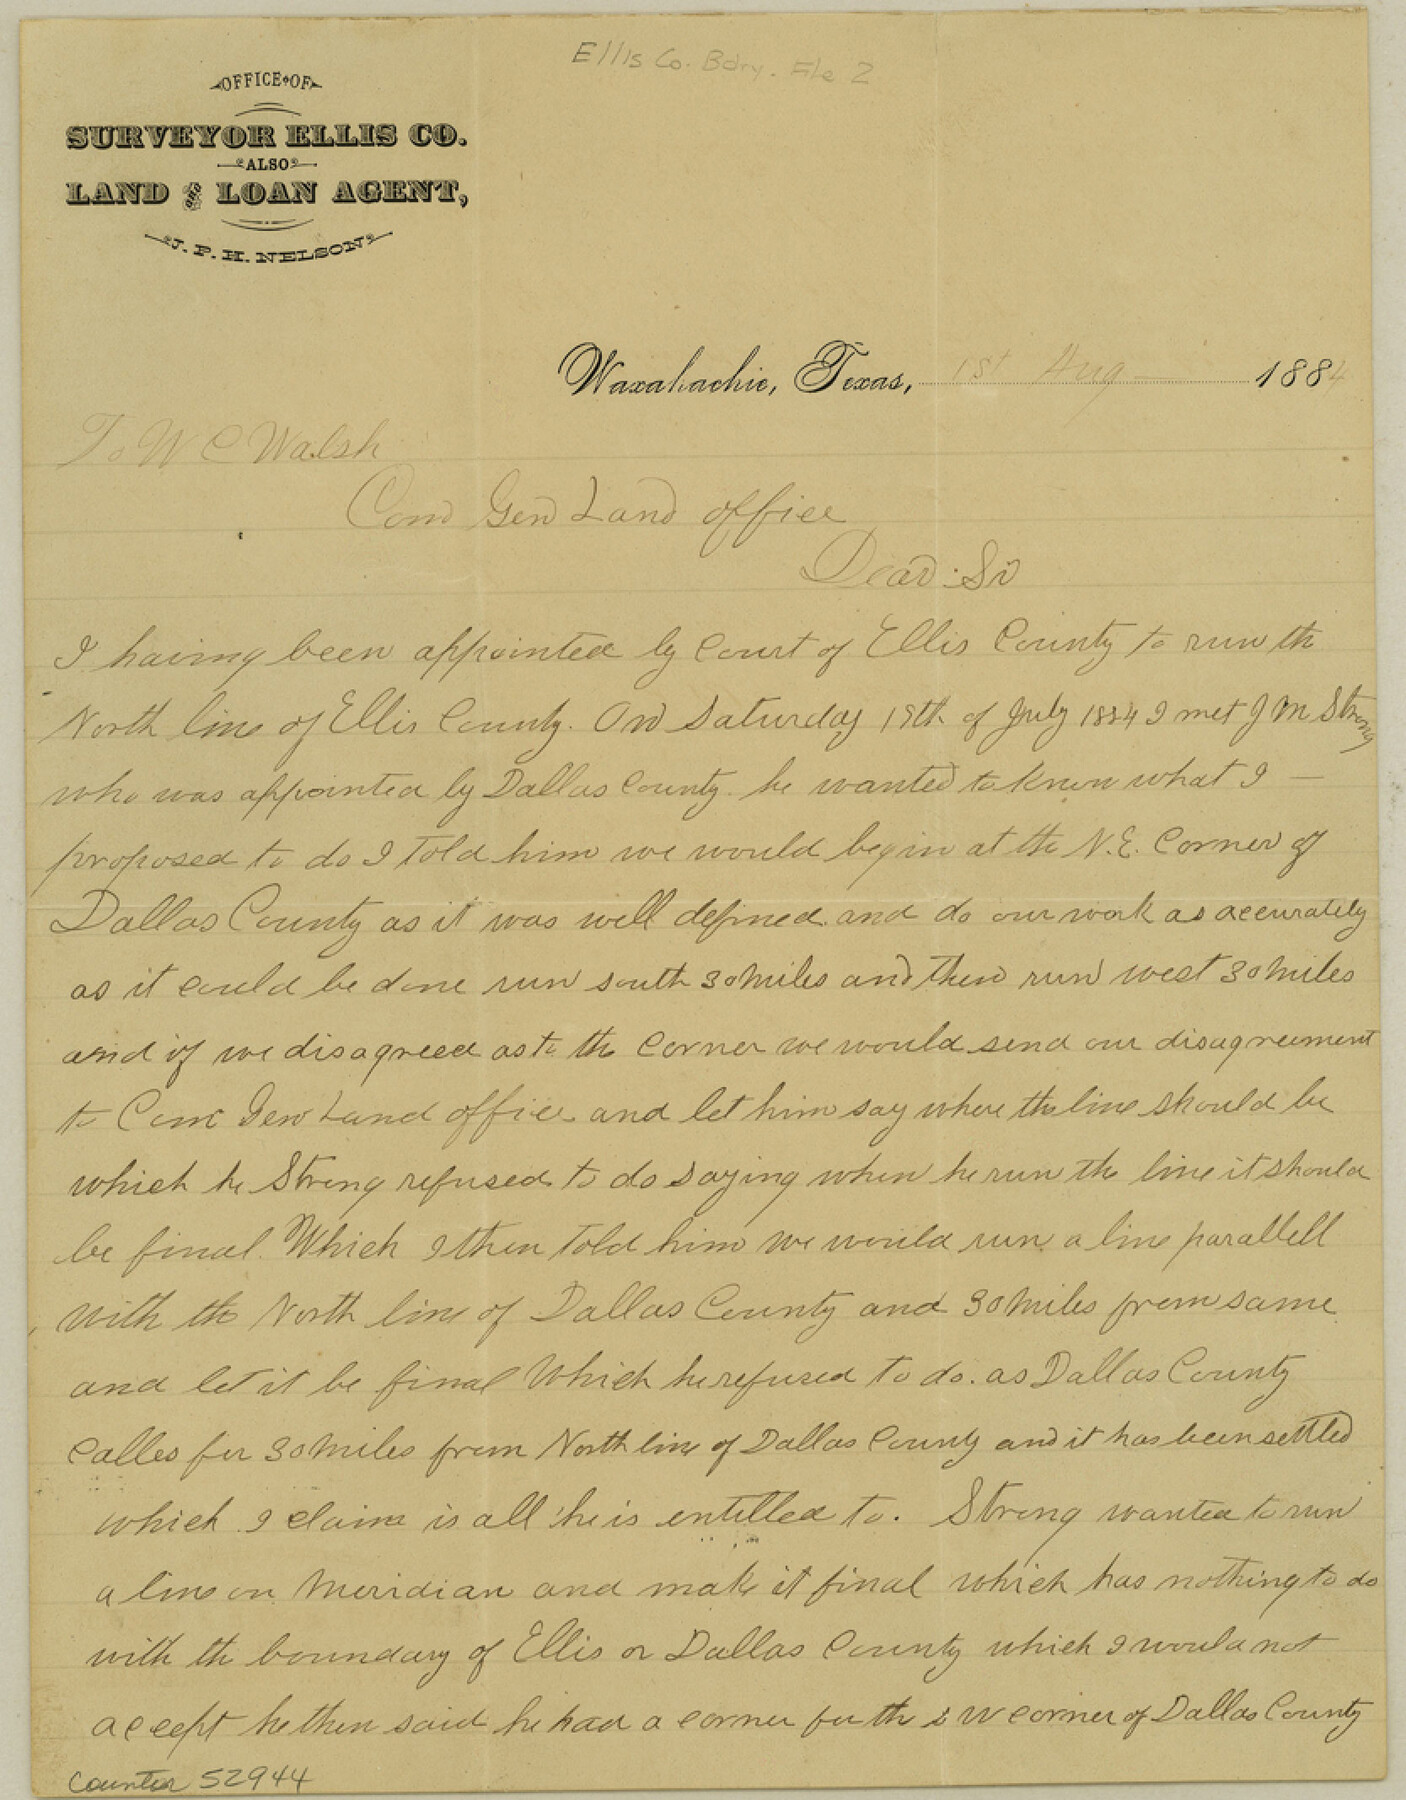 Ellis Co. Bdry. File 2
OFFICE OF
SURVEYOR ELLIS CO.
ALSO
LAND AND LOAN AGENT,
J. P. H. NELSON
Waxahachie, Texas, 1st Aug 1884
To W C Walsh
Com Gen Land office
Dear Sir
I having been appointed by Court of Ellis County to run the
North line of Ellis County. On Saturday 19th of July 1884 I met J M Strong
who was appointed by Dallas County. he wanted to know what I —
proposed to do I told him we would begin at the N.E. Corner of
Dallas County as it was well defined and do our work as accurately
as it could be done run south 30 miles and then run west 30 miles
and if we disagreed as to the Corner we would send our disagreement
to Com Gen Land office and let him say where the line should be
which he Strong refused to do saying when he run the line it should
be final. Which I then told him we would run a line parallell
with the North line of Dallas County and 30 miles from same
and let it be final Which he refused to do. as Dallas County
calles for 30 miles from North line of Dallas County and it has been settled
which I claim is all he is entitled to. Strong wanted to run
a line on Meridian and make it final which has nothing to do
with the boundary of Ellis or Dallas County which I would not
accept he then said he had a corner for the S W corner of Dallas County
counter 52944